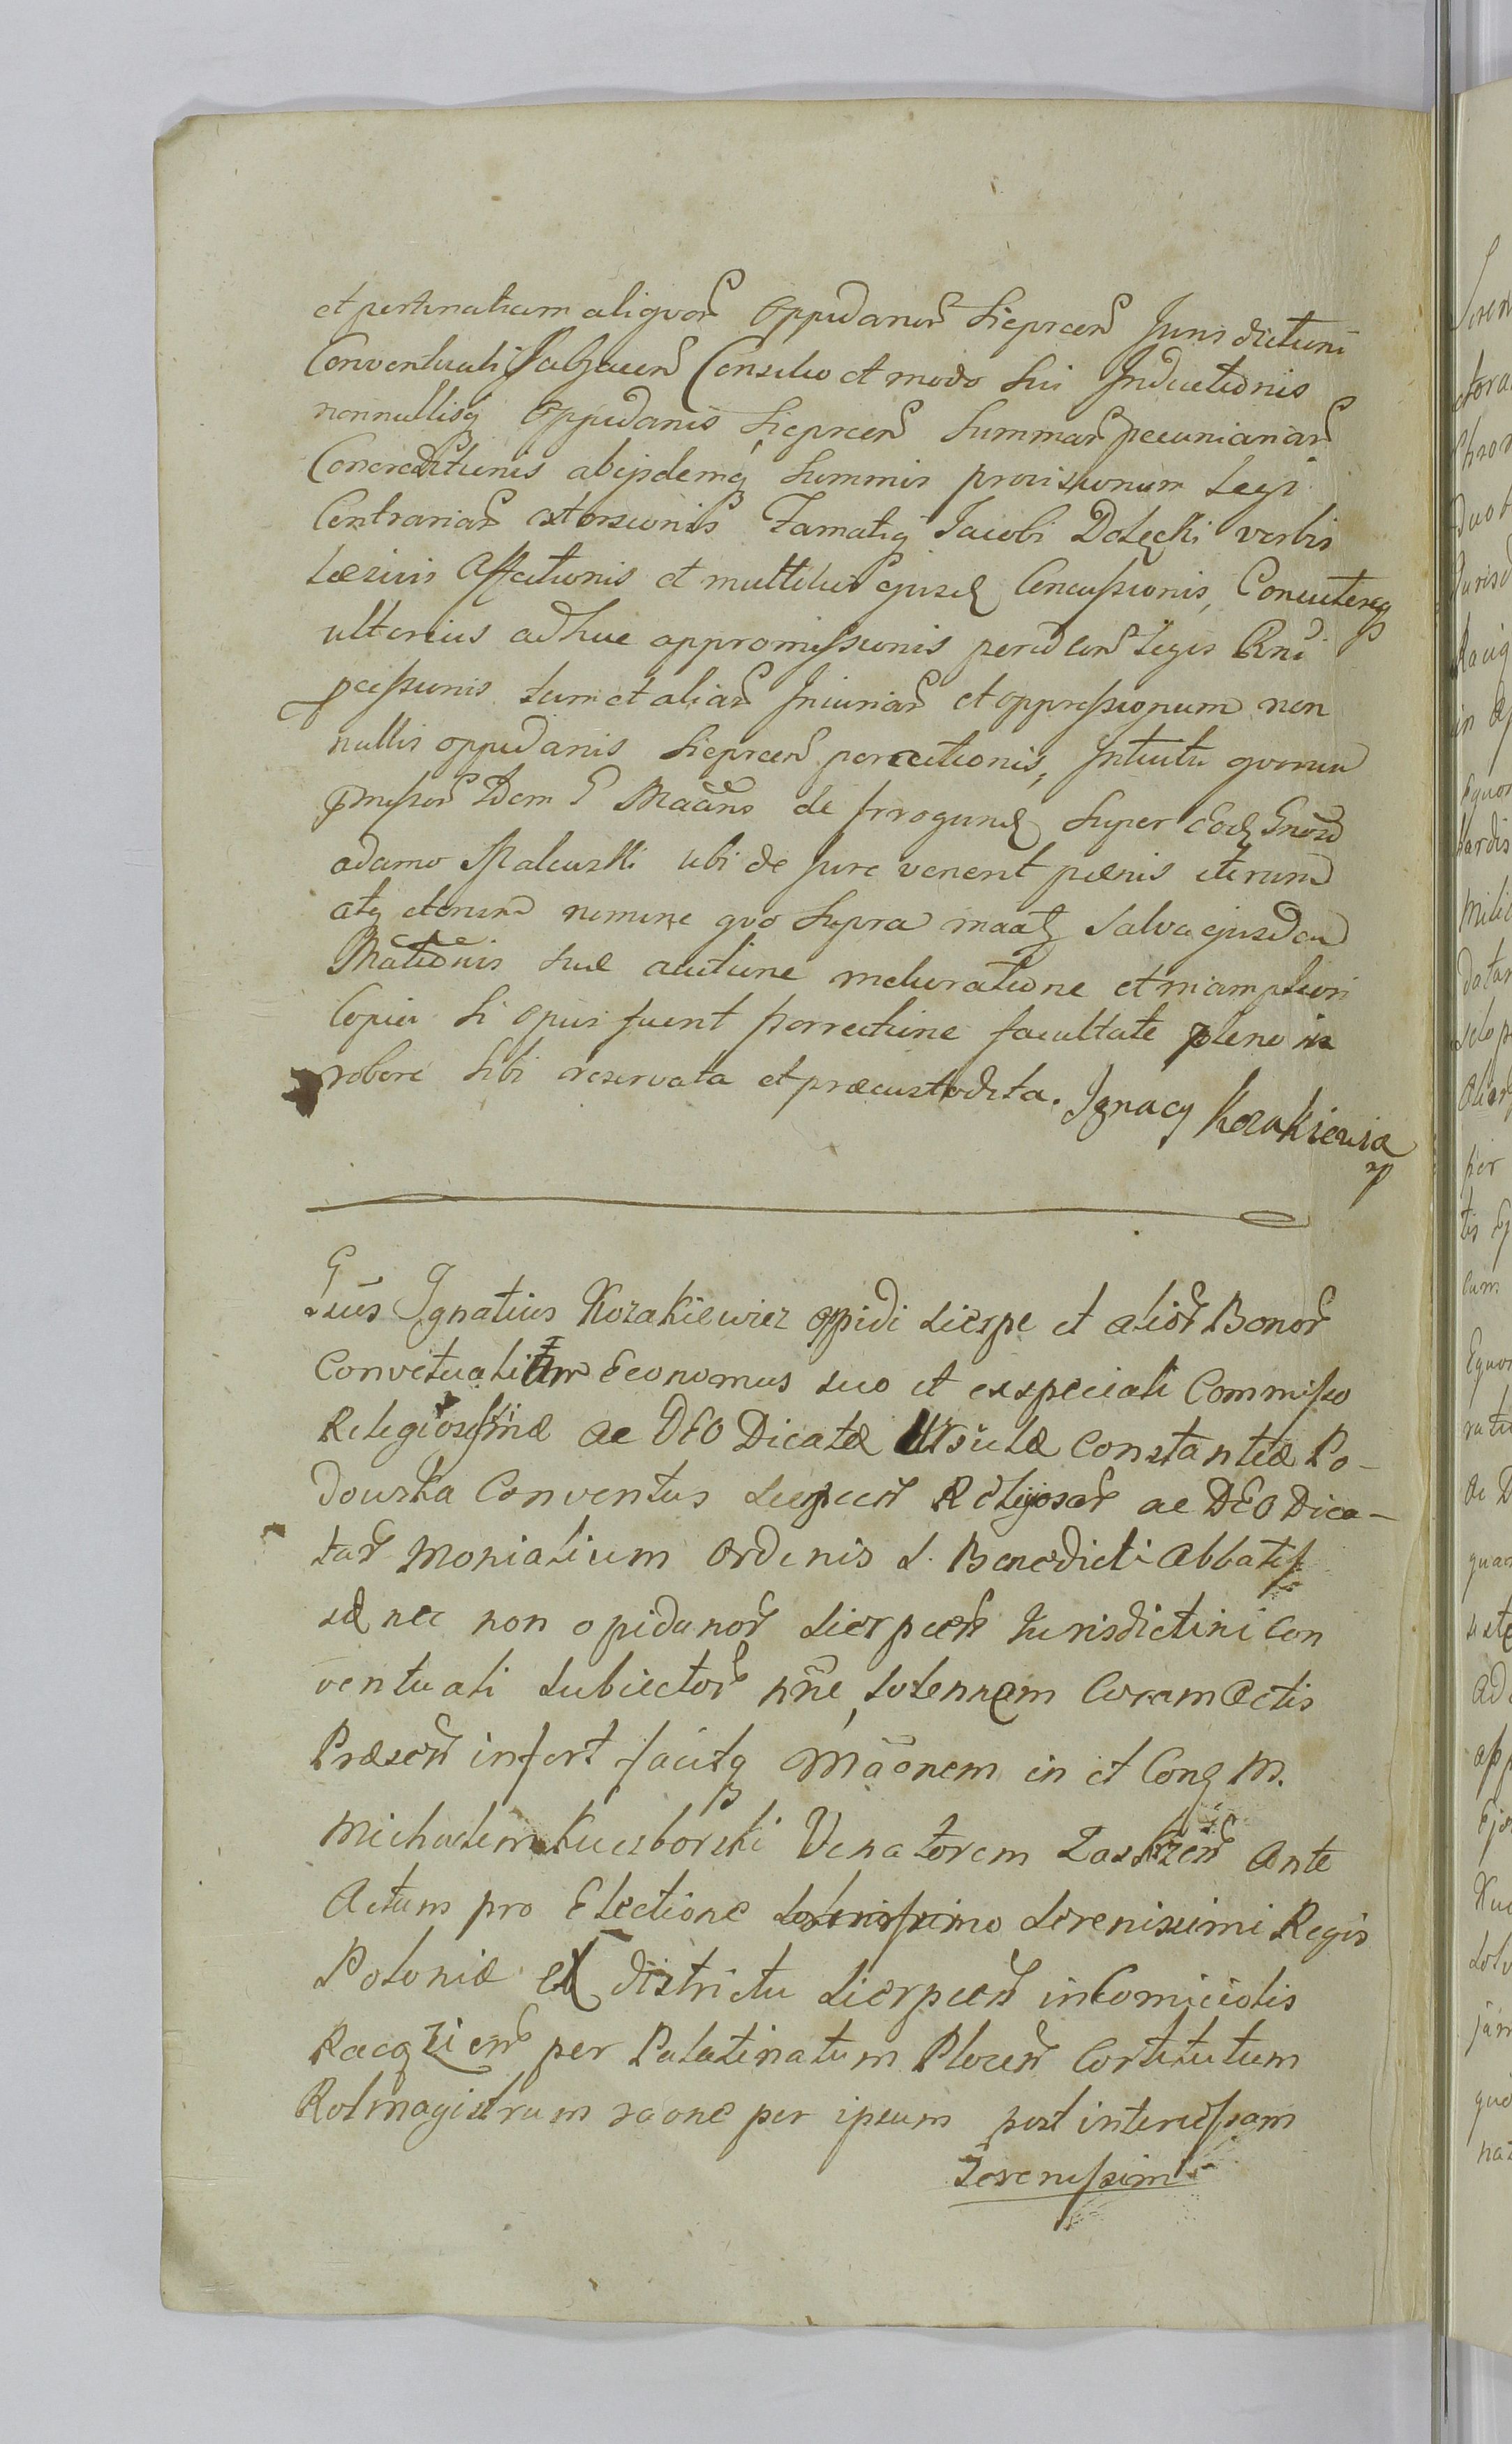 et pertinatium aliquor Oppidanor Sieprcen Juris dictioni
Conventuali Subjacen Consilio et modo sui Inductionis
nonnullisq Oppidanis Sieprcen Summar pecuniariar
Concreditionis abijsdemq Summis provisionum Legi
Contrariar extorsionis Famatiq Jacobi Dolęcki verbis
Læsivis Affectionis et multilius ejusd Concussionis, Concutereq
ulterius adhuc appromissionis
pcessionis tum et aliar Iniuriar et oppressionum non
nullis oppidanis Sieprcen percutionis, Intuitu quorum
pmissor Idem G Maans de Irrogund Super Eod Gnoso
adamo Malewski ubi de Jure venerit pænis iterum
atq iterum nomine quo Supra maatz Salva ejusdem
Mationis suæ auctione melioratione et
Copiæ Si Opus fuerit porrectione facultate plene in
robore Sibi reservata et præcustodita. Ignacy Kozakiewicz
mp
Gsus Ignatius Kozakiewicz oppidi Sierpc et alior Bonor
Conventualium Economus suo et ex speciali Commisso
Religiosissimæ ac DEO Dicatæ Ursulæ Constantiæ Po-
dowska Conventus Sierpcen Religiosar ac DEO Dica-
tar Monialium Ordinis S. Benedicti Abbatis
sæ nec non opidanor Sierpcen Jurisdictini Con
ventuali Subiector nne, Solennem Coram Actis
Præsen infert facitq Maonem in et Cong M.
Michaelem Kuczborski Venatorem Zaskrzen Ante
Actum pro Electione Serenissimo Serenissimi Regis
Poloniæ ex districtu Sierpcen in Comiciolis
Raciązien per Palatinatum Plocen Constitutum
Rotmagistrum raone per ipsum post intercessam
Serenissimi